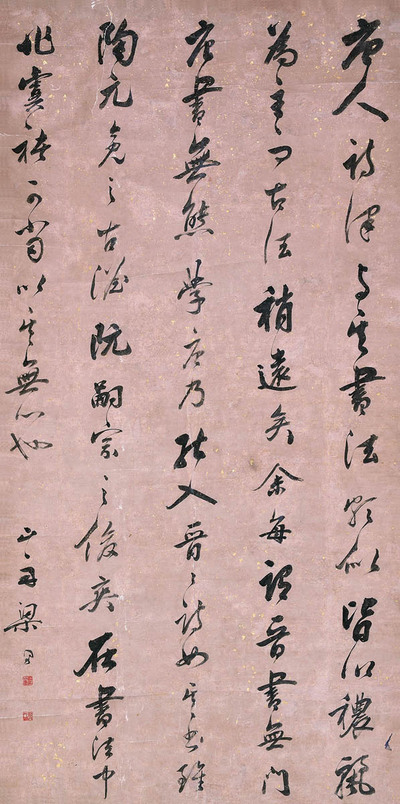 唐人詩律與其書法頗似皆以穠麗
為主而古法稍遠矣余每謂晉書無門
唐書無態學唐乃能入晉晉詩如其書雖
陶元亮之古澹阮嗣宗之俊爽在書法中
非虞褚可當以其無心也
山舟梁同